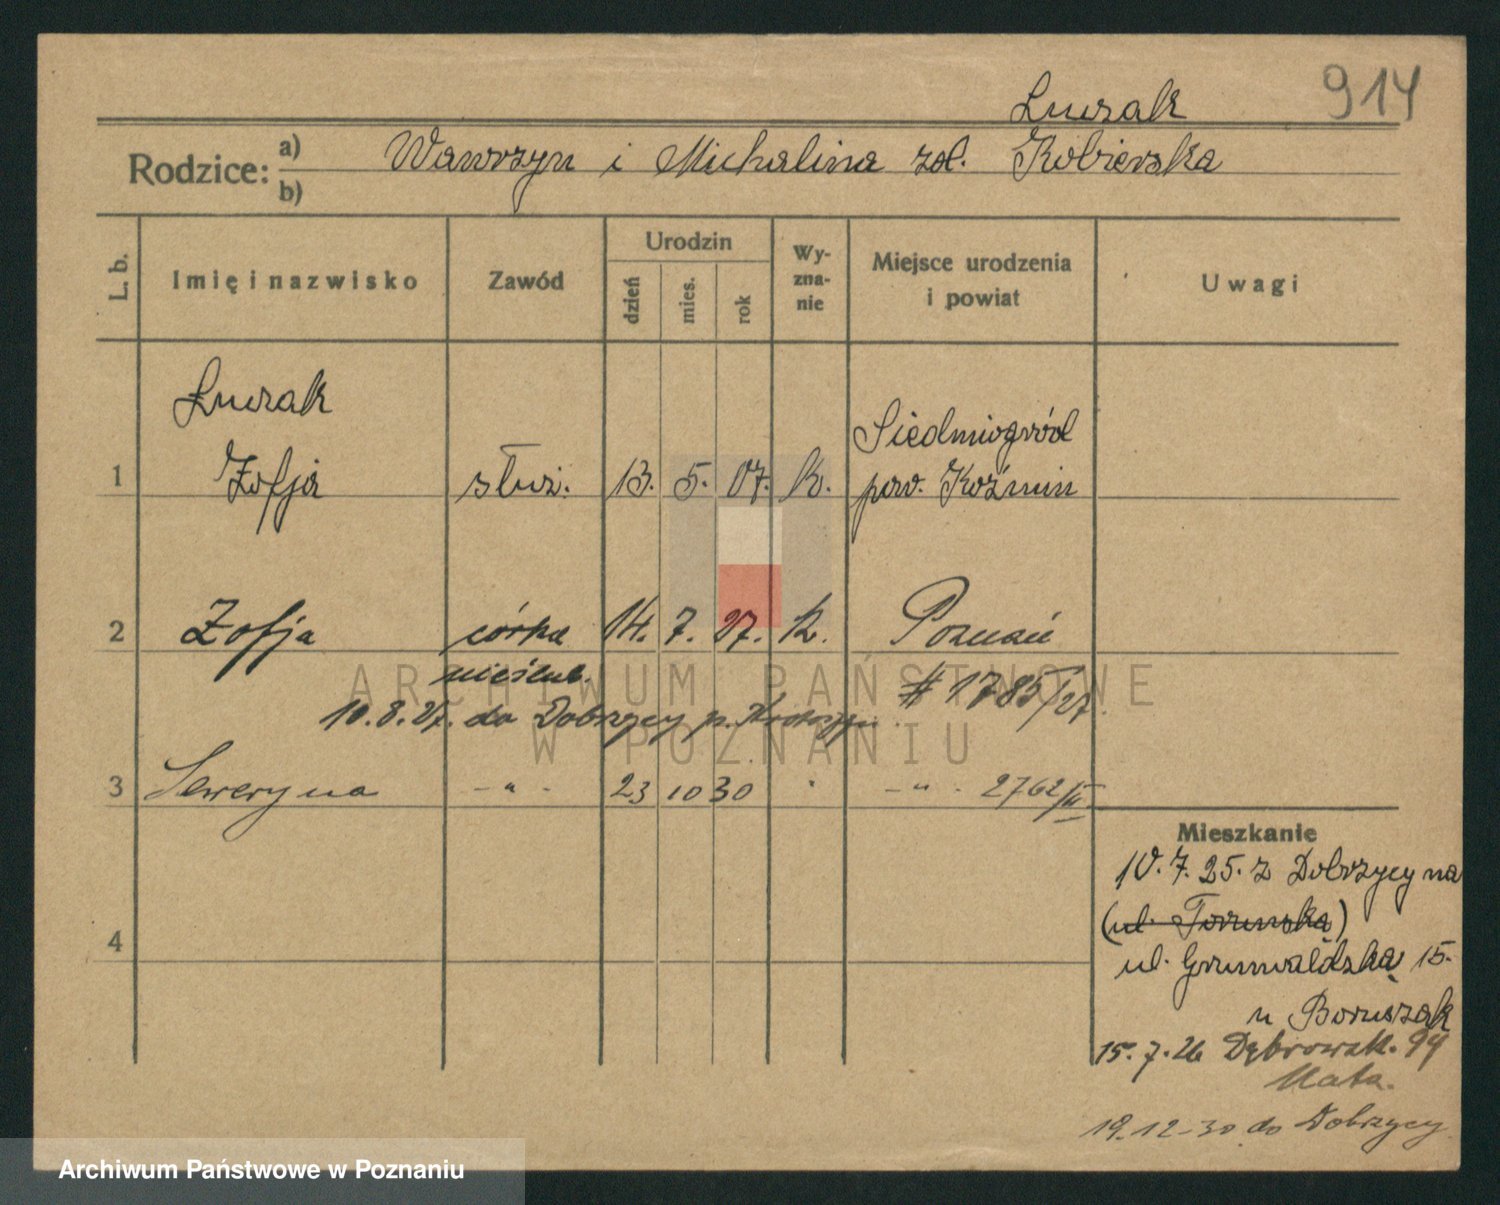 914
Łuczak
Rodzice: a) b) Wawrzyn i Michalina zd. Kobierska
L. b. Imię i nazwisko Zawód Urodzin dzień mies. rok Wy-zna-nie Miejsce urodzenia i powiat Uwagi
Łuczak
1 Zofja służ. 13. 5. 07. k. Siedmiogród
pow. Koźmin
2 Zofja córka 14. 7. 27. k. Poznań
nieślub. # 1785/27
10.8.27. do Dobrzycy p. Krotoszyn
3 Seweryna -"- 23 10 30 " -"- 2762/III
4
Mieszkanie
10.7.25. z Dobrzycy na
(ul. Toruńska)
ul. Grunwaldzka 15.
u Boruszak
15.7.26 Dąbrowsk. 94
19.12-30 do Dobrzycy
ARCHIWUM PAŃSTWOWE
W POZNANIU
Archiwum Państwowe w Poznaniu